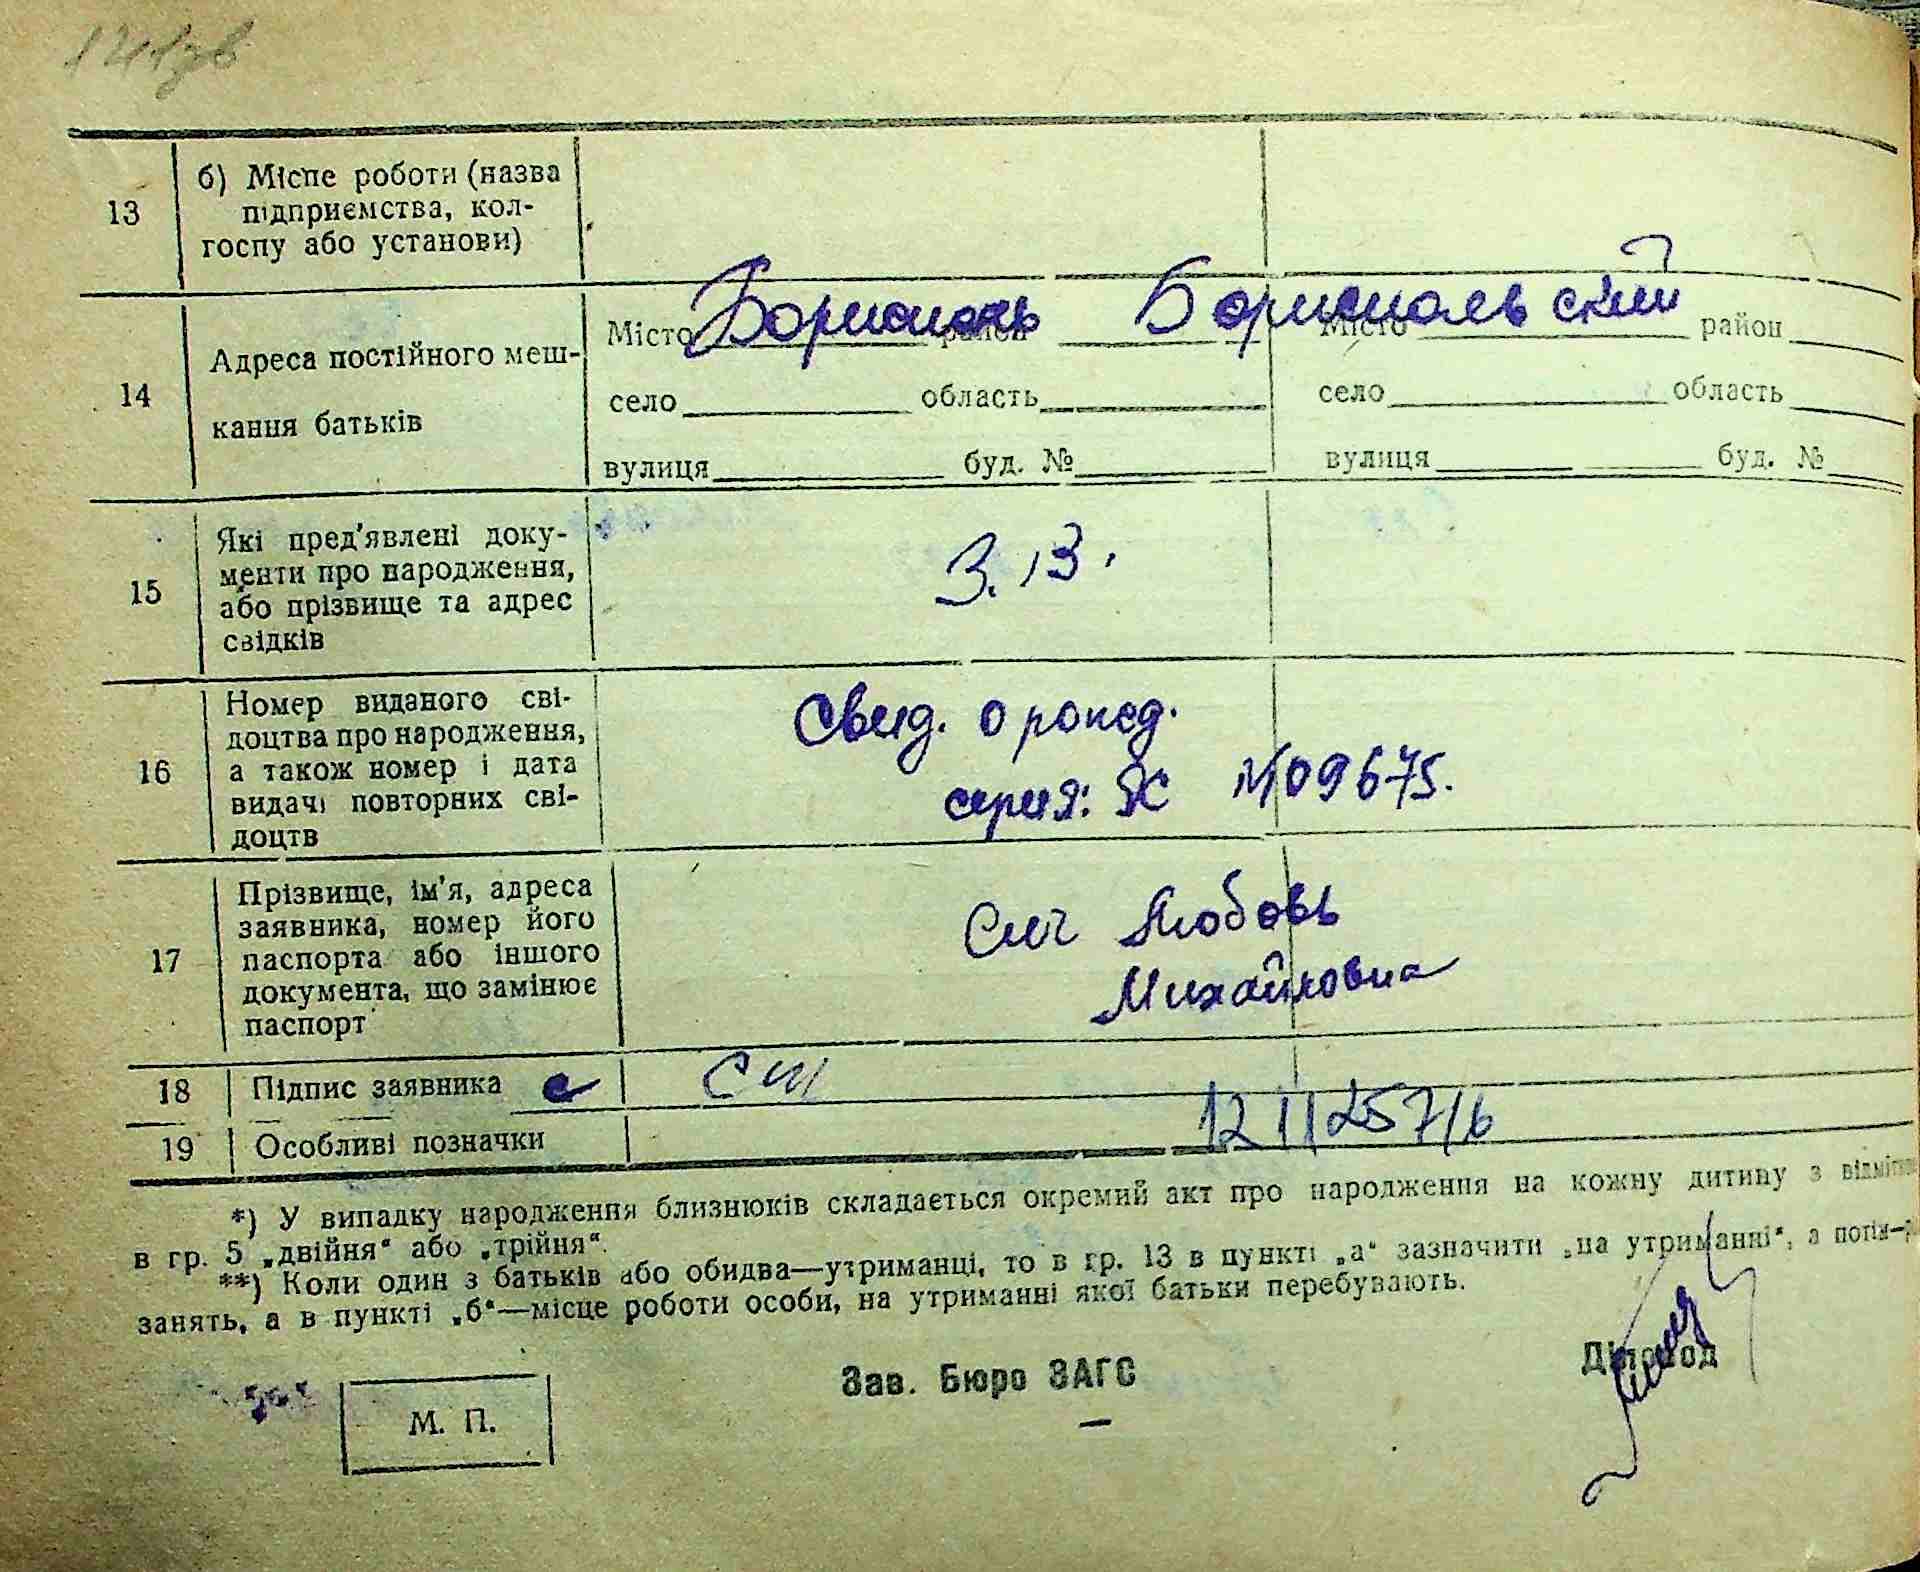 13 б) Місце роботи (назва
підприємства, кол-
госпу або установи)
14 Адреса постійного меш-
кання батьків
Місто Борисполь район Бориспольский Місто район
село область село область
вулиця буд. № вулиця буд. №
15 Які пред'явлені доку-
менти про народження,
або прізвище та адрес
свідків
16 Номер виданого сві-
доцтва про народження,
а також номер і дата
видачі повторних сві-
доцтв
Свид. о рожд.
серия: ЯС №09675.
17 Прізвище, ім'я, адреса
заявника, номер його
паспорта або іншого
документа, що замінює
паспорт
Сич Любовь
Михайловна
18 Підпис заявника
19 Особливі позначки
*) У випадку народження близнюків складається окремий акт про народження на кожну дитину з
в гр. 5 „двійня“ або „трійня“.
**) Коли один з батьків або обидва—утриманці, то в гр. 13 в пункті „а“ зазначити „на утриманні“, а потім
занять, а в пункті „б“—місце роботи особи, на утриманні якої батьки перебувають.
Зав. Бюро ЗАГС Діловод
М. П.